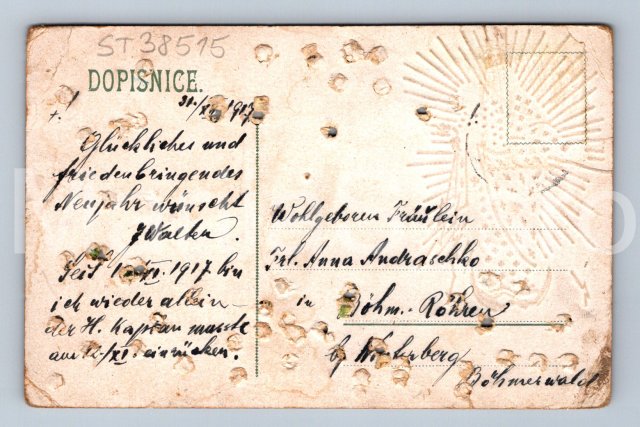 ST 38515
DOPISNICE.
31./XII. 1917
Glückliches und
friedenbringendes
Neujahr wünscht
J Walter.
Seit 1. XI. 1917 bin
ich wieder allein –
der H. Kaplan musste
am 12./XI. einrücken.
Wohlgeboren Fräulein
Frl. Anna Andraschko
in Böhm.-Röhren
b/ Winterberg
Böhmerwald